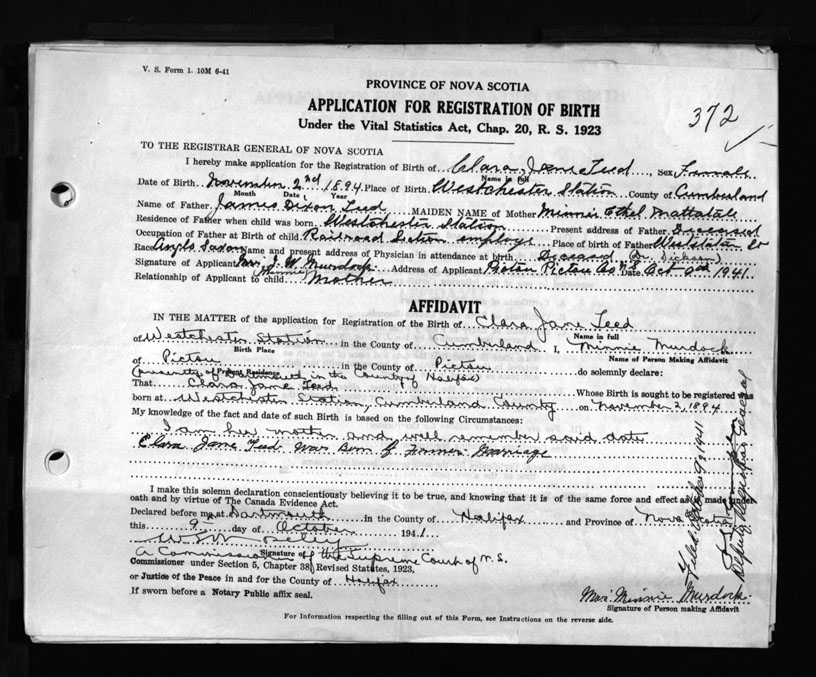 V. S. Form 1. 10M 6-41
PROVINCE OF NOVA SCOTIA
APPLICATION FOR REGISTRATION OF BIRTH
Under the Vital Statistics Act, Chap. 20, R. S. 1923
372
TO THE REGISTRAR GENERAL OF NOVA SCOTIA
I hereby make application for the Registration of Birth of Clara Jane Teed, Sex Female
Name in full
Date of Birth November 2nd 1894 Place of Birth Westchester Station County of Cumberland
Month Date Year
Name of Father James Dixon Teed MAIDEN NAME of Mother Minnie Ethel Mattatall
Residence of Father when child was born Westchester Station Present address of Father Deceased
Occupation of Father at Birth of child Railroad Section employe Place of birth of Father
Race Anglo Saxon Name and present address of Physician in attendance at birth Deceased (Dr. Dickson)
Signature of Applicant Mrs. J. W. Murdock Address of Applicant Pictou Pictou Co N.S Date Oct 9th 1941.
(Minnie)
Relationship of Applicant to child Mother
AFFIDAVIT
IN THE MATTER of the application for Registration of the Birth of Clara Jane Teed
Name in full
of Westchester Station in the County of Cumberland I, Minnie Murdock
Birth Place Name of Person Making Affidavit
of Pictou in the County of Pictou do solemnly declare:
(presently of Dartmouth in the County of Halifax)
That Clara Jane Teed Whose Birth is sought to be registered was
born at Westchester Station, Cumberland County on November 2, 1894
My knowledge of the fact and date of such Birth is based on the following Circumstances:
I am her mother and well remember said date
Clara Jane Teed was Born of Former Marriage
I make this solemn declaration conscientiously believing it to be true, and knowing that it is of the same force and effect as if made under
oath and by virtue of The Canada Evidence Act.
Declared before me at Dartmouth in the County of Halifax and Province of Nova Scotia
this 9 day of October 1941
Signature of
A Commissioner of the Supreme Court of N.S.
Commissioner under Section 5, Chapter 38, Revised Statutes, 1923,
or Justice of the Peace in and for the County of Halifax
If sworn before a Notary Public affix seal.
Mrs. Minnie Murdock
Signature of Person making Affidavit
For Information respecting the filling out of this Form, see Instructions on the reverse side.
Filed October 9, 1941
Deputy Registrar General